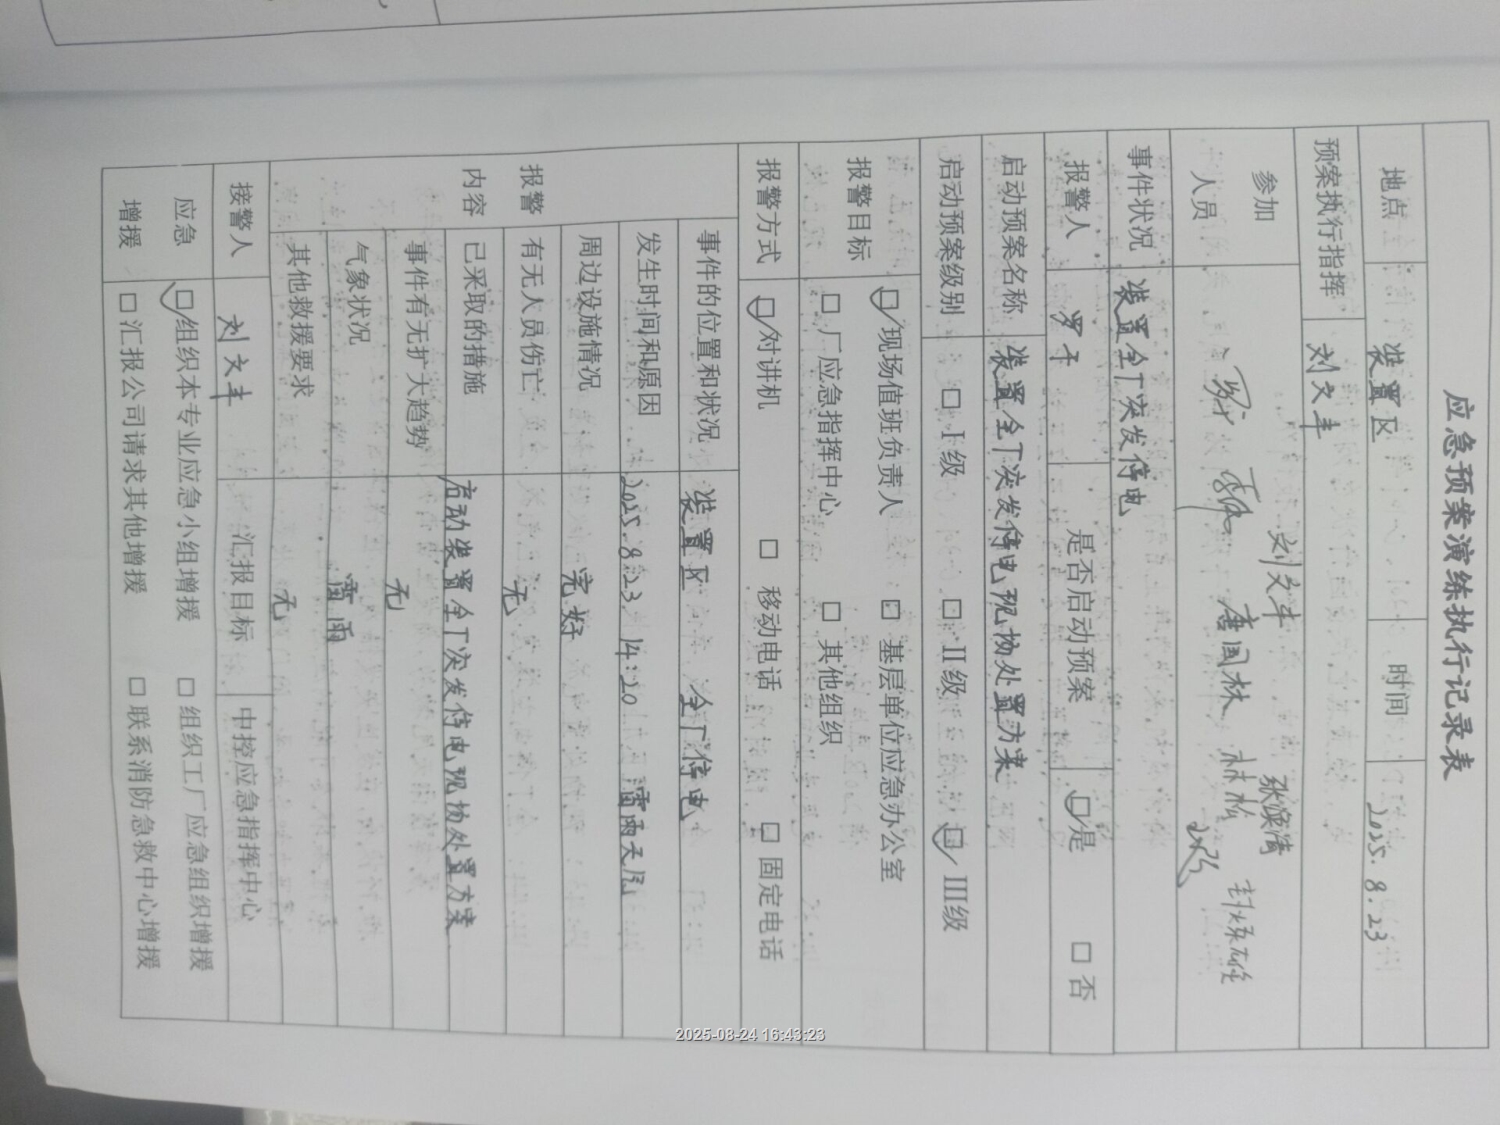 应急预案演练执行记录表
地点 装置区 时间 2025.8.23
预案执行指挥 刘文丰
参加人员 刘文丰 张滨清
唐国林 林松
事件状况 装置全厂突发停电
报警人 罗干 是否启动预案 ☑是 □否
启动预案名称 装置全厂突发停电现场处置方案
启动预案级别 □ I级 □ II级 ☑ III级
报警目标 ☑现场值班负责人 □ 基层单位应急办公室
□ 厂应急指挥中心 □ 其他组织
报警方式 ☑对讲机 □ 移动电话 □ 固定电话
报警内容
事件的位置和状况 装置区 全厂停电
发生时间和原因 2025.8.23. 14:20 雷雨天尽
周边设施情况 完好
有无人员伤亡 无
已采取的措施 启动装置全厂突发停电现场处置方案
事件有无扩大趋势 无
气象状况 雷雨
其他救援要求 无
接警人 刘文丰 汇报目标 中控应急指挥中心
应急增援 ☑组织本专业应急小组增援 □ 组织工厂应急组织增援
□ 汇报公司请求其他增援 □ 联系消防急救中心增援
2025-08-24 16:43:23